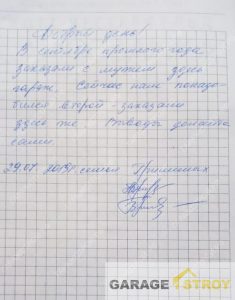 Добрый день!
В сентябре прошлого года
заказали с мужем здесь
гараж. Сейчас нам понадо-
бился второй - заказали
здесь же
сами.
29.07 2019г семья
GARAGE STROY